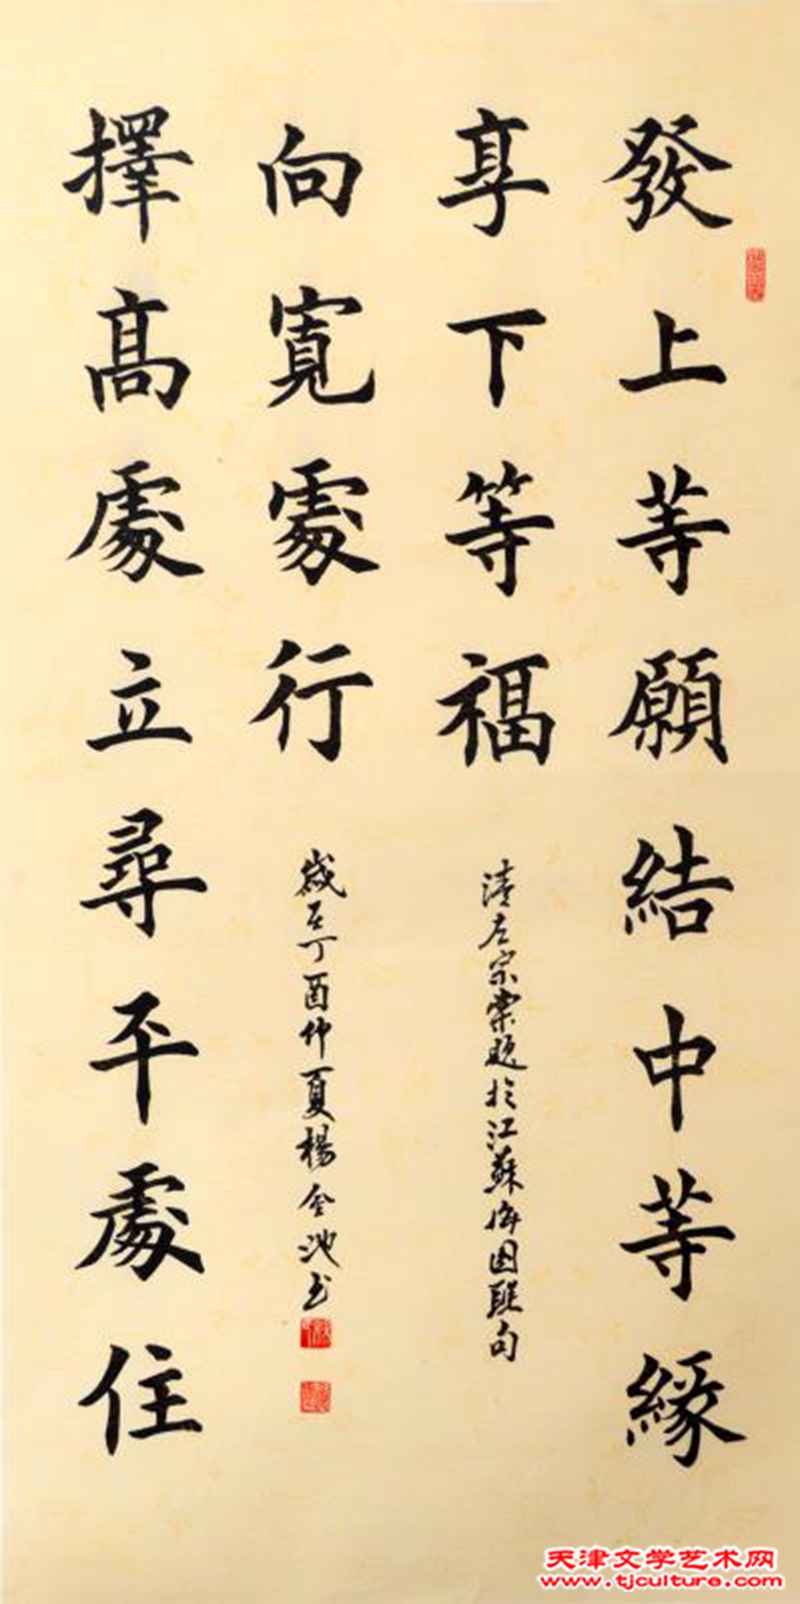 發上等願結中等緣
享下等福
清左宗棠题於江蘇梅园联句
擇高處立尋平處住
向寬處行
歲在丁酉仲夏楊金池书
天津文学艺术网
www.tjculture.com